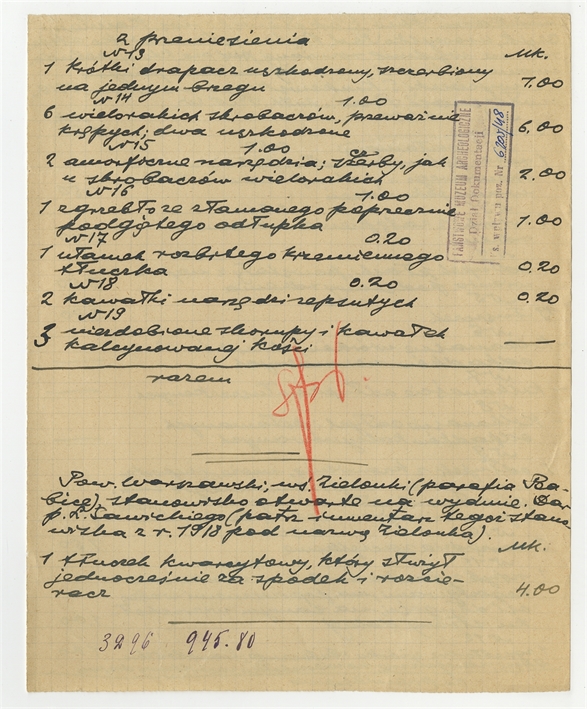 z przeniesienia
Mk.
№ 13
1 krótki drapacz uszkodzony, szczerbiony
na jednym brzegu 1.00
№ 14 1.00
6 wielorakich skrobaczów, przeważnie
krępych; dwa uszkodzone 6.00
№ 15 1.00
2 amorficzne narzędzia; szczerby, jak
u skrobaczów wielorakich 2.00
№ 16 1.00
1 zgrzebło ze złamanego poprzecznie
podgiętego odłupka 1.00
№ 17 0.20
1 ułamek rozbitego krzemiennego
tłuczka 0.20
№ 18 0.20
2 kawałki narzędzi zepsutych 0.20
№ 19
2 niezdobione skorupy i kawałek
3 kalcynowanej kości —
razem
PAŃSTWOWE MUZEUM ARCHEOLOGICZNE
Dział Dokumentacji
Ks. wpływu poz. Nr
Pow. Warszawski, wś. Zielonki (parafia Ba-
bice), stanowisko otwarte na wydmie. Dar
p. L. Sawickiego (patrz inwentarz tegoż stano-
wiska z r. 1918 pod nazwą Zielonka).
Mk.
1 tłuczek kwarcytowy, który służył
jednocześnie za spodek i rozcie-
racz 4.00
3296 945.80